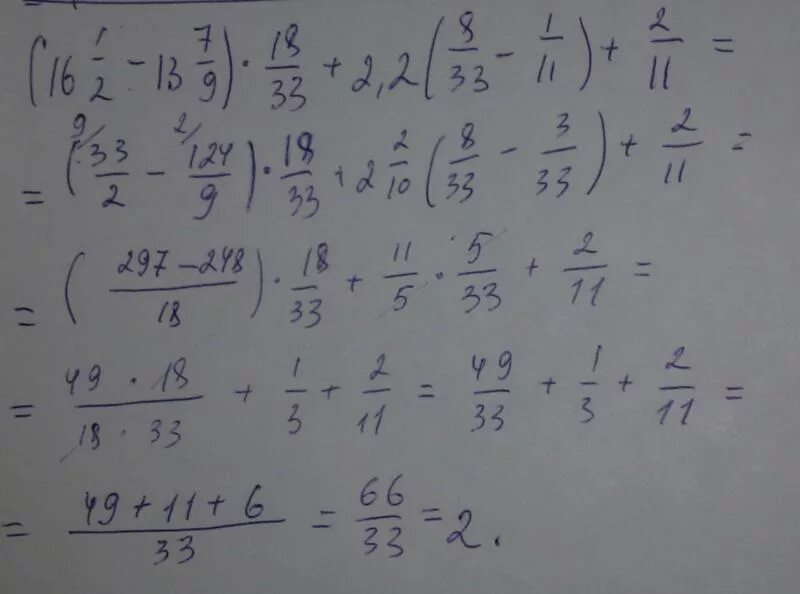 (16 1/2 − 13 7/9) · 18/33 + 2,2 (8/33 − 1/11) + 2/11 =
= (9/ 33/2 − 2/ 124/9) · 18/33 + 2 2/10 (8/33 − 3/33) + 2/11 =
= ( (297 − 248)/18 ) · 18/33 + 11/5 · 5/33 + 2/11 =
= (49 · 18)/(18 · 33) + 1/3 + 2/11 = 49/33 + 1/3 + 2/11 =
= (49 + 11 + 6)/33 = 66/33 = 2.